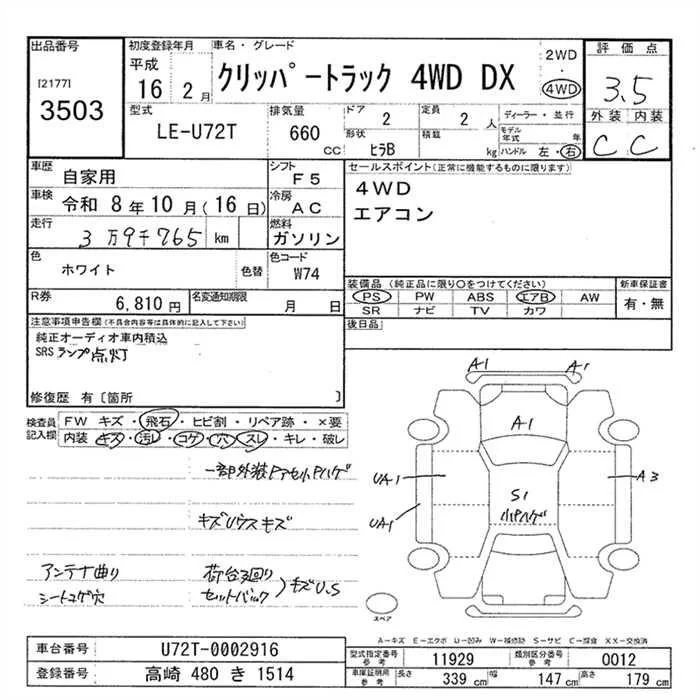 出品番号
[2177]
3503
初度登録年月
平成
16 2月
車名・グレード
クリッパートラック 4WD DX
2WD
・
4WD
評価点
3.5
外装 内装
C C
型式
LE-U72T
排気量
660
CC
ドア
2
定員
2 人
形状
ヒラB
積載
kg
ディーラー・並行
モデル年式
年
ハンドル 左・右
車歴
自家用
シフト
F5
車検
令和 8年 10月(16日)
冷房
AC
走行
3万9千765 km
燃料
ガソリン
色
ホワイト
色替
色コード
W74
R券
6,810円
名変通知期限
月 日
セールスポイント(正常に機能するものに限ります)
4WD
エアコン
装備品(純正品に限り○をつけてください)
PS PW ABS エアB AW
SR ナビ TV カワ
新車保証書
有・無
後日品
注意事項申告欄(不具合内容等は具体的に記入して下さい)
純正オーディオ車内積込
SRSランプ点灯
修復歴 有〔箇所 〕
検査員記入欄
FW キズ・飛石・ヒビ割・リペア跡・×要
内装 キズ・汚レ・コゲ・穴・スレ・キレ・破レ
一部外装Pアセ小Pハゲ
キズUウスキズ
アンテナ曲り
シートコゲ穴
荷台3回り
セットバック
キズU.S
A1 A1
A1
UA1
A3
S1
小Pハゲ
UA1
スペア
A-キズ E-エクボ U-凹み W-補修跡 S-サビ C-腐食 XX-交換済
車台番号
U72T-0002916
登録番号
高崎 480 き 1514
型式指定番号
参考
11929
類別区分番号
参考
0012
車庫証明用
参考
長さ 339 cm
幅 147 cm
高さ 179 cm